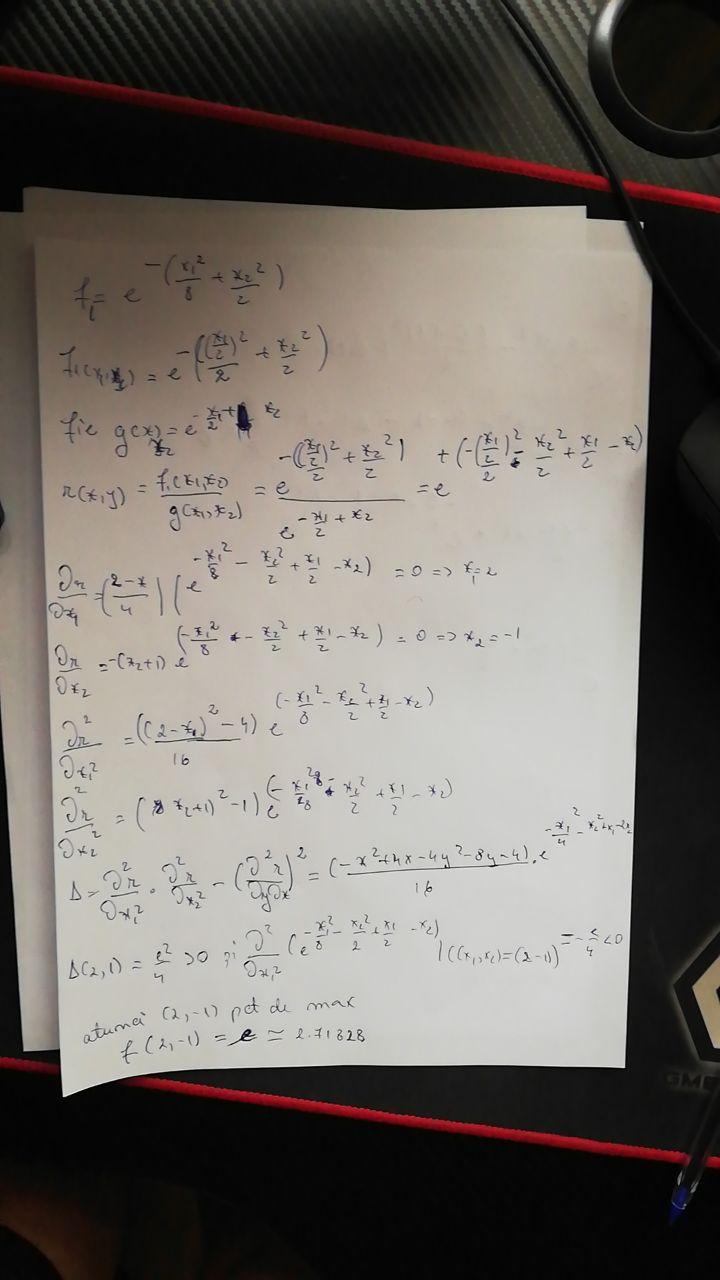 f₁ = e^{-(x₁²/8 + x₂²/2)}
f₁(x₁,x₂) = e^{-((x₁/2)²/2 + x₂²/2)}
fie g(x) = e^{-x₁/2 + x₂}
x₂
r(x,y) = f₁(x₁,x₂)/g(x₁,x₂) = e^{-((x₁/2)²/2 + x₂²/2)}/e^{-x₁/2 + x₂} = e^{+(-(x₁/2)²/2 - x₂²/2 + x₁/2 - x₂)}
∂r/∂x₁ = (2-x/4)(e^{-x₁²/8 - x₂²/2 + x₁/2 - x₂)} = 0 => x₁=2
∂r/∂x₂ = -(x₂+1) e^{(-x₁²/8 - x₂²/2 + x₁/2 - x₂)} = 0 => x₂ = -1
∂r²/∂x₁² = ((2-x₁)² - 4)/16 e^{(-x₁²/8 - x₂²/2 + x₁/2 - x₂)}
∂²r/∂x₂² = (x₂+1)² - 1) e^{(-x₁²/8 - x₂²/2 + x₁/2 - x₂)}
Δ = ∂²r/∂x₁² · ∂²r/∂x₂² - (∂²r/∂y∂x)² = (-x²+4x-4y²-8y-4)/16 · e^{-x₁²/4 - x₂²+x₁-2x₂}
Δ(2,1) = e²/4 >0 și ∂²/∂x₁² (e^{-x₁²/8 - x₂²/2 + x₁/2 - x₂)} |((x₁,x₂)=(2-1) = -e/4 <0
atunci (2,-1) pct de max
f(2,-1) = e ≃ 2.71828
GME